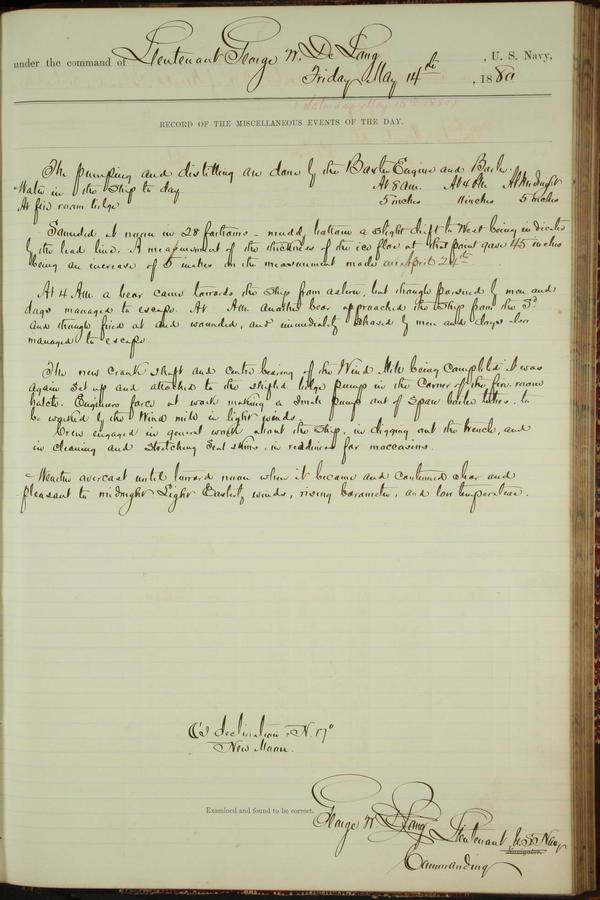 under the command of Lieutenant George W. De Long, U. S. Navy,
Friday May 14th, 1880
RECORD OF THE MISCELLANEOUS EVENTS OF THE DAY.
The pumping and distilling are done by the Baxter Engine and Boiler.
Water in the Ship to day. At 8 am. At 4 PM. At Midnight
At fire room bilge 5 inches 11 inches 5 inches
Sounded at noon in 28 fathoms - muddy bottom a slight drift to West being indicated
by the lead line. A measurement of the thickness of the ice floe at that point gave 45 inches
being an increase of 5 inches on the measurement made on April 24th.
At 4 AM. a bear came towards the Ship from astern, but though pursued by men and
dogs managed to escape. At AM. another bear approached the Ship from the Sd
and though fired at and wounded, and immediately chased by men and dogs also
managed to escape.
The new crank shaft and centre bearing of the Wind Mill being completed it was
again set up and attached to the bilge pump in the corner of the fire room
hatch. Engineers force at work making a small pump out of spare boiler tubes, to
be worked by the Wind mill in light winds.
Crew engaged in general work about the Ship, in digging out the trench, and
in cleaning and stretching Seal skins, in readiness for moccasins.
Weather overcast until toward noon when it became and continued clear and
pleasant to midnight. Light Easterly winds, rising barometer, and low temperature.
declination N. 17°
New Moon.
Examined and found to be correct.
George W. De Long Lieutenant U.S. Navy
Commanding